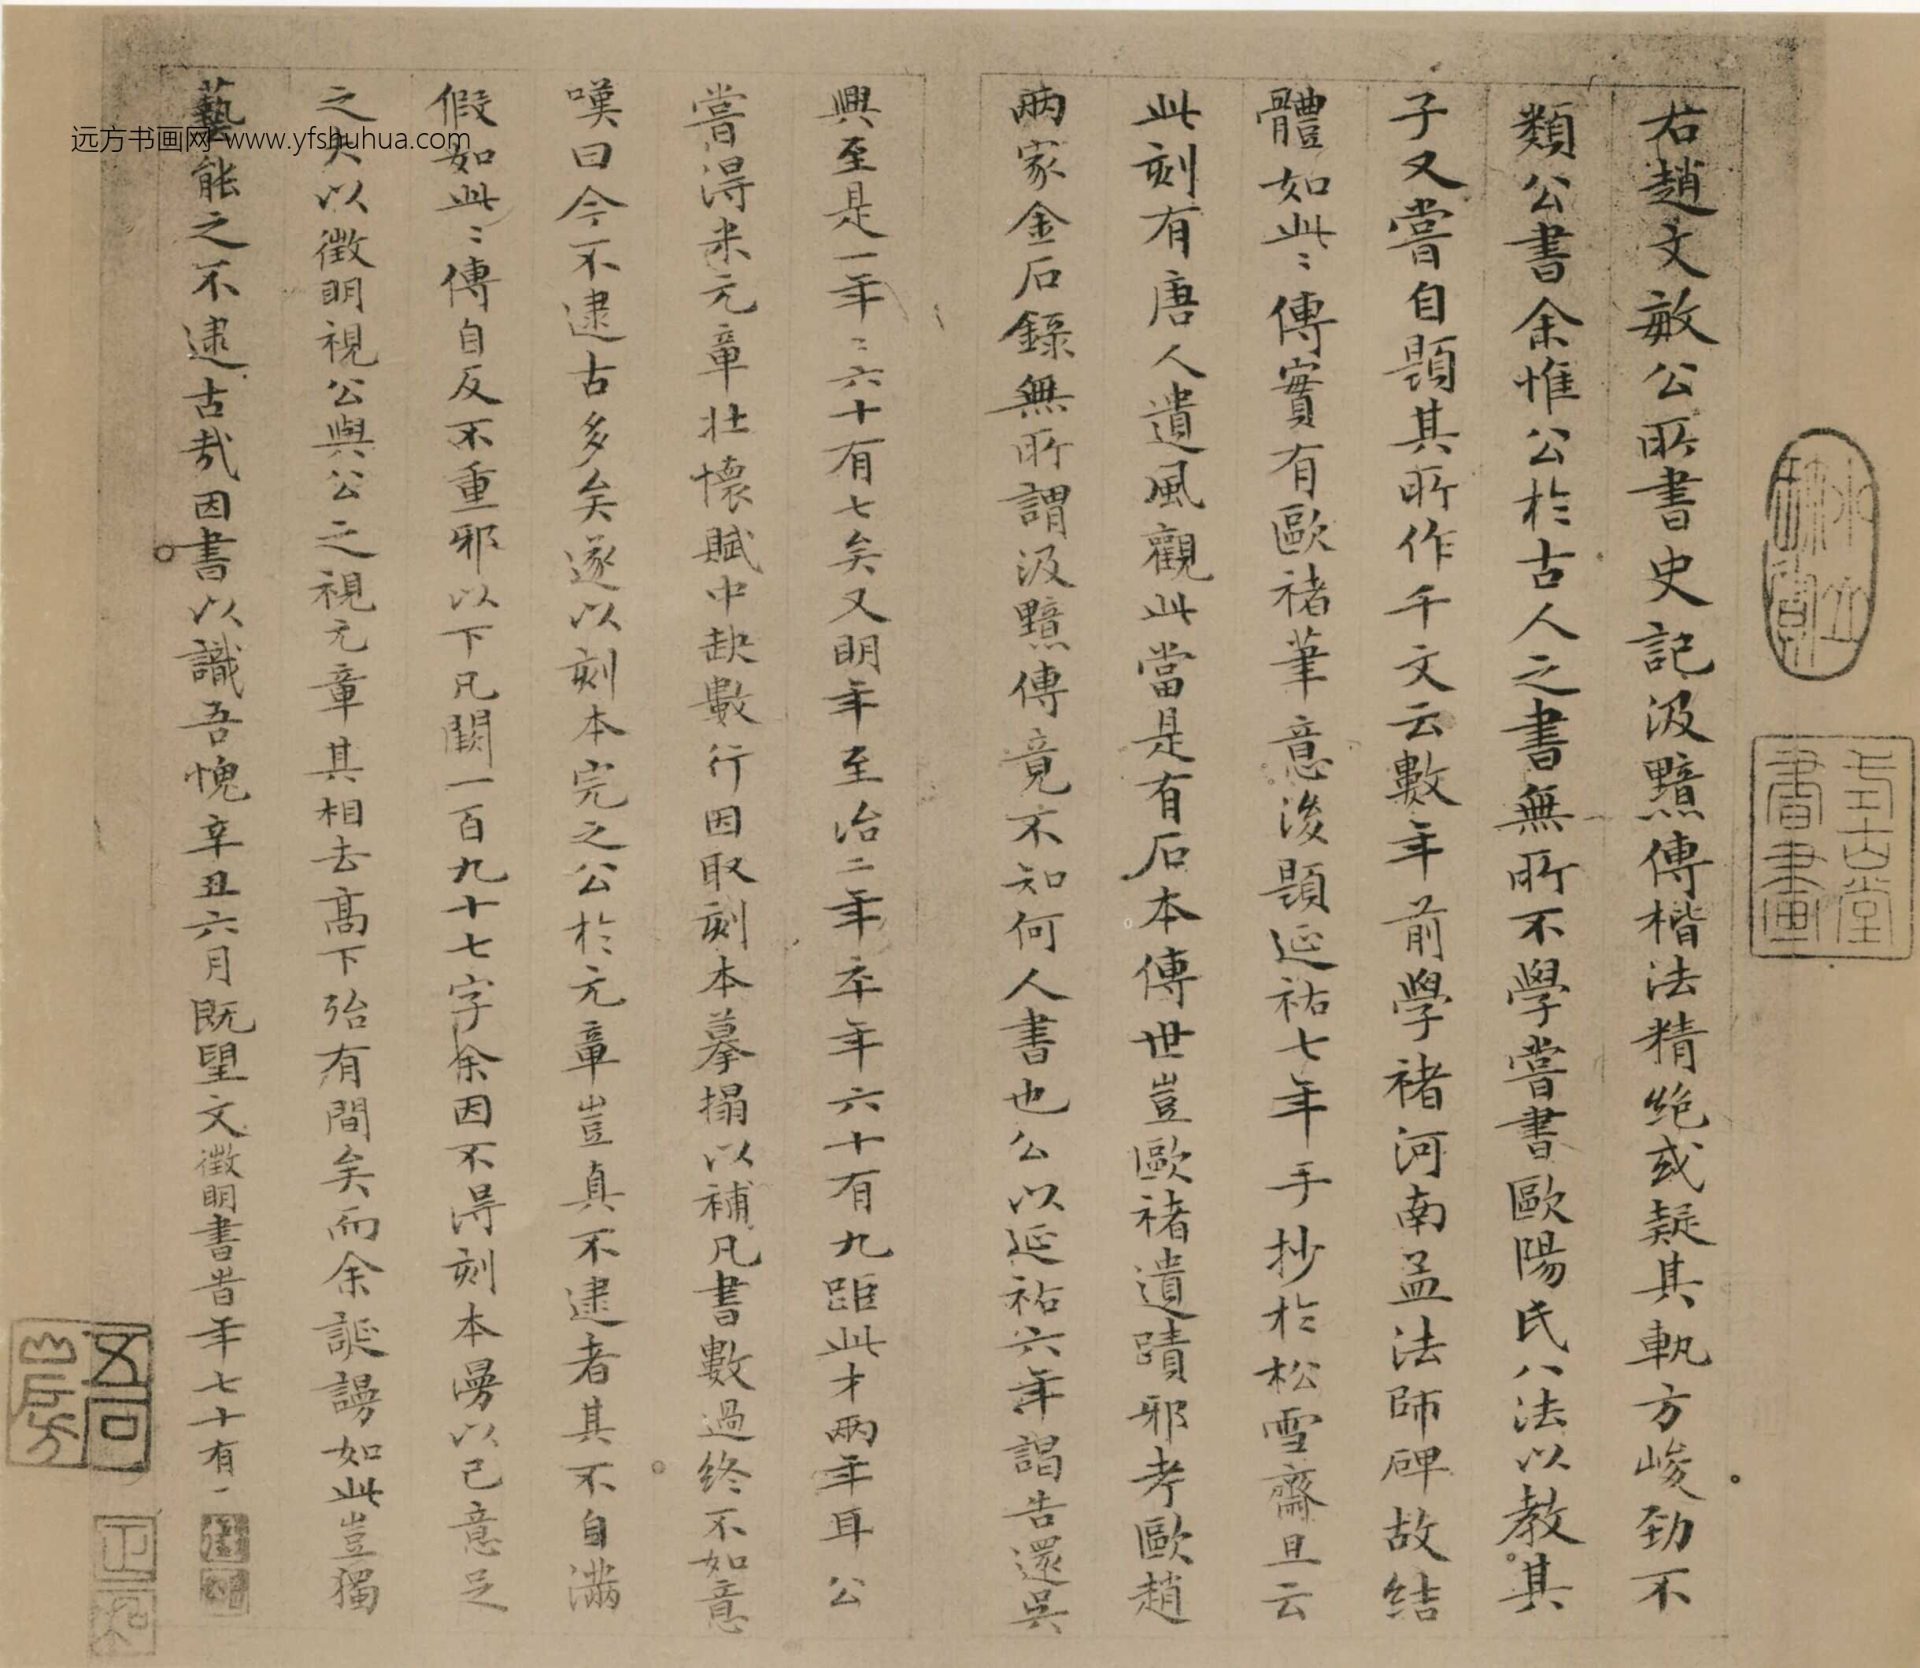 右趙文敏公所書史記汲黯傳楷法精絶或疑其軌方峻勁不
類公書余惟公於古人之書無所不學嘗書歐陽氏八法以教其
子又嘗自題其所作千文云數年前學褚河南孟法師碑故結
體如此〻傳實有歐褚筆意後題延祐七年手抄於松雪齋且云
此刻有唐人遺風觀此當是有石本傳世豈歐褚遺蹟邪考歐趙
兩家金石錄無所謂汲黯傳竟不知何人書也公以延祐六年謁告還吳
興至是一年〻六十有七矣又明年至治二年卒年六十有九距此才兩年耳公
嘗得米元章壯懷賦中缺數行因取刻本摹搨以補凡書數過終不如意
嘆曰今不逮古多矣遂以刻本完之公於元章豈真不逮者其不自滿
假如此〻傳自反不重邪以下凡闕一百九十七字余因不得刻本漫以己意足
之夫以徵明視公與公之視元章其相去高下殆有間矣而余誕謾如此豈獨
藝能之不逮古哉因書以識吾愧辛丑六月既望文徵明書昔年七十有二
式古堂
書畫
吾同
山房
正
和
远方书画网 www.yfshuhua.com